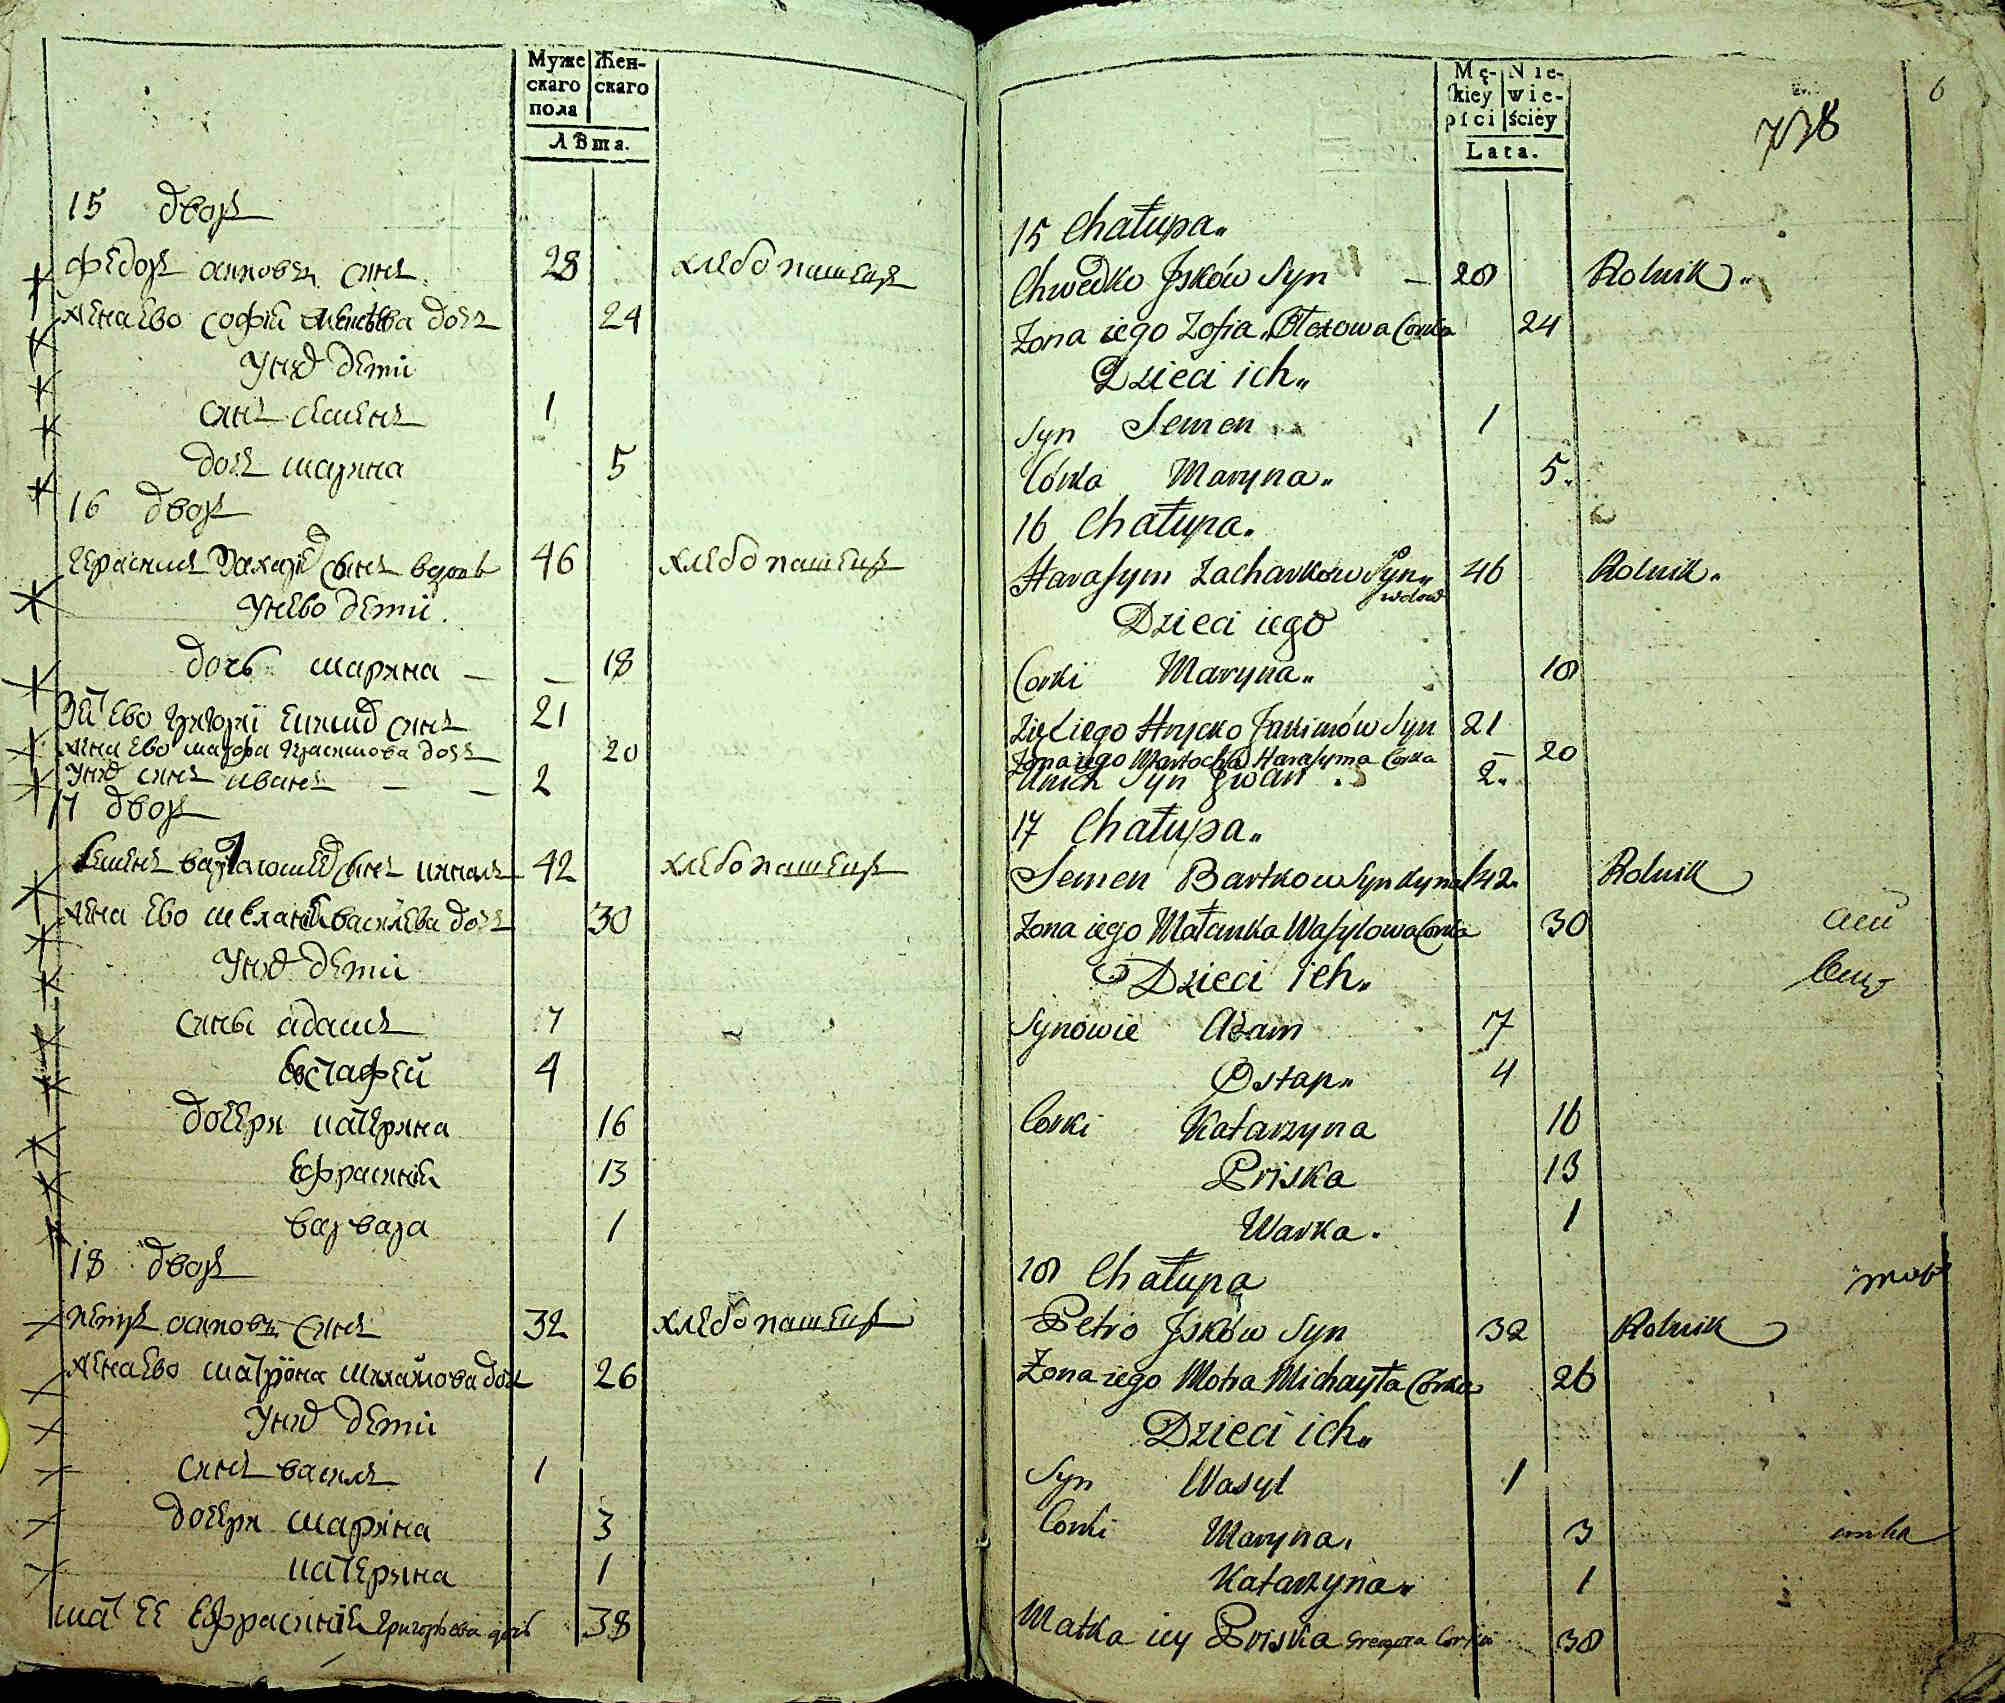 Муже Жен-
скаго скаго
пола
Лѣта.
15 дворъ
Федоръ осиповъ синъ 28 хлебопашецъ
жена ево софиі дочъ 24
Уних дети
синъ семенъ 1
дочъ марина 5
16 дворъ
Герасимъ Захарів синъ вдовъ 46 хлебопашецъ
Унево дети
дочь марина 18
Зять ево григориі екимов синъ 21
жена ево марфа герасимова дочъ 20
Уних синъ иванъ 2
17 дворъ
Семенъ варфаломеев синъ 42 хлебопашецъ
жена ево меланиі василева дочъ 30
Уних дети
сини адамъ 7
Евстафей 4
дочери катерина 16
Ефросиниі 13
варвара 1
18 дворъ
петръ осиповъ синъ 32 хлебопашецъ
жена ево матрона михаилова дочъ 26
Уних дети
синъ василъ 1
дочери марина 3
катерина 1
мать ее Ефросиниі григорьева дочь 38
Mę- Nie-
kiey wie-
płci ściéy
Lata.
6
738
15 Chałupa
Chwedko Jsków Syn 28 Rolnik
Żona iego Zofia Corka 24
Dzieci ich
Syn Semen 1
Córka Maryna 5
16 Chałupa
Harasym Zacharkow Syn 46 Rolnik
wdow
Dzieci iego
Corki Maryna 18
Zięć iego Hrycko Jakimów Syn 21
Żona iego Martocha Harasyma Corka 20
Unich Syn Jwan 2
17 Chałupa
Semen Bartkow Syn 42 Rolnik
Żona iego Małanka Wasylowa Corka 30
Dzieci ich
Synowie Adam 7
Ostap 4
Corki Katarzyna 16
Priska 13
Warka 1
18 Chałupa
Petro Jsków Syn 32 Rolnik
Żona iego Motra Michayła Corka 26
Dzieci ich
Syn Wasyl 1
Corki Maryna 3
Katarzyna 1
Matka iey Priska Gregora Corka 38